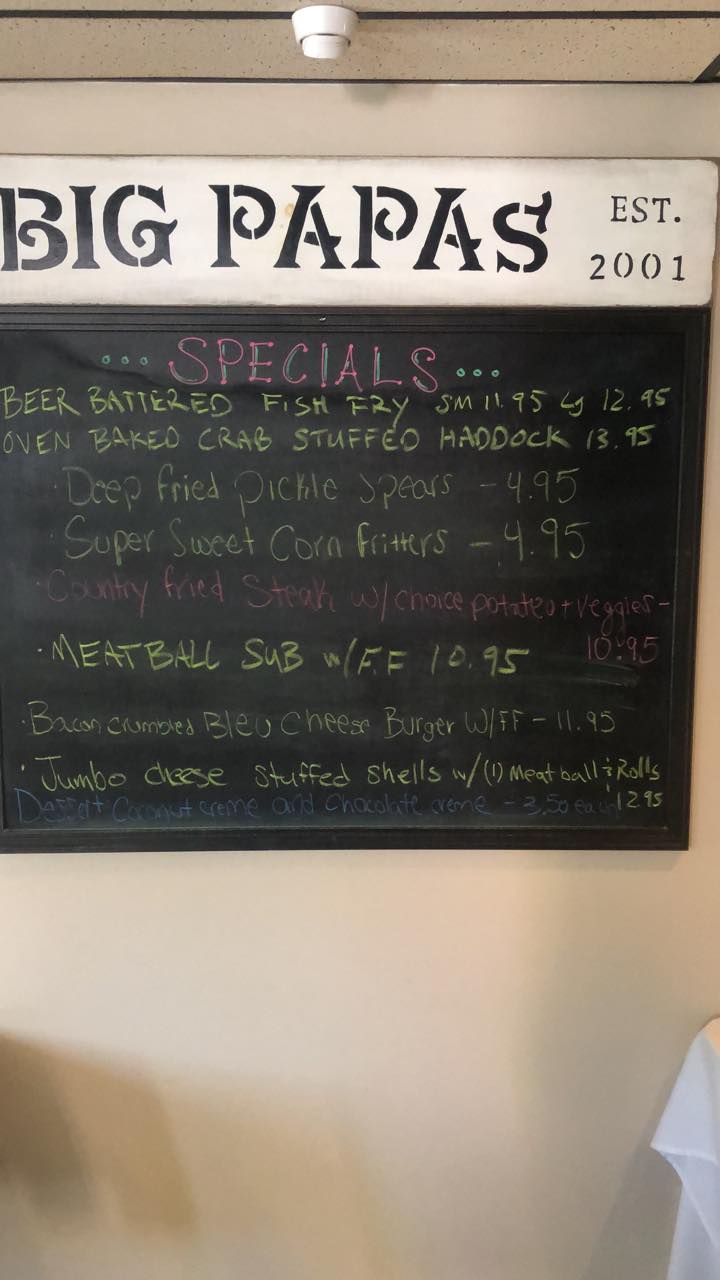 BIG PAPAS EST. 2001
... SPECIALS ...
BEER BATTERED FISH FRY SM 11.95 Lg 12.95
OVEN BAKED CRAB STUFFED HADDOCK 13.95
· Deep fried pickle spears - 4.95
· Super Sweet Corn fritters - 4.95
· Country fried Steak w/choice potato + veggies -
10.95
· MEATBALL SUB w/F.F 10.95
· Bacon crumbled Bleu Cheese Burger W/FF - 11.95
· Jumbo cheese stuffed shells w/(1) Meatball & Rolls
12.95
Dessert Coconut creme and Chocolate creme - 3.50 each